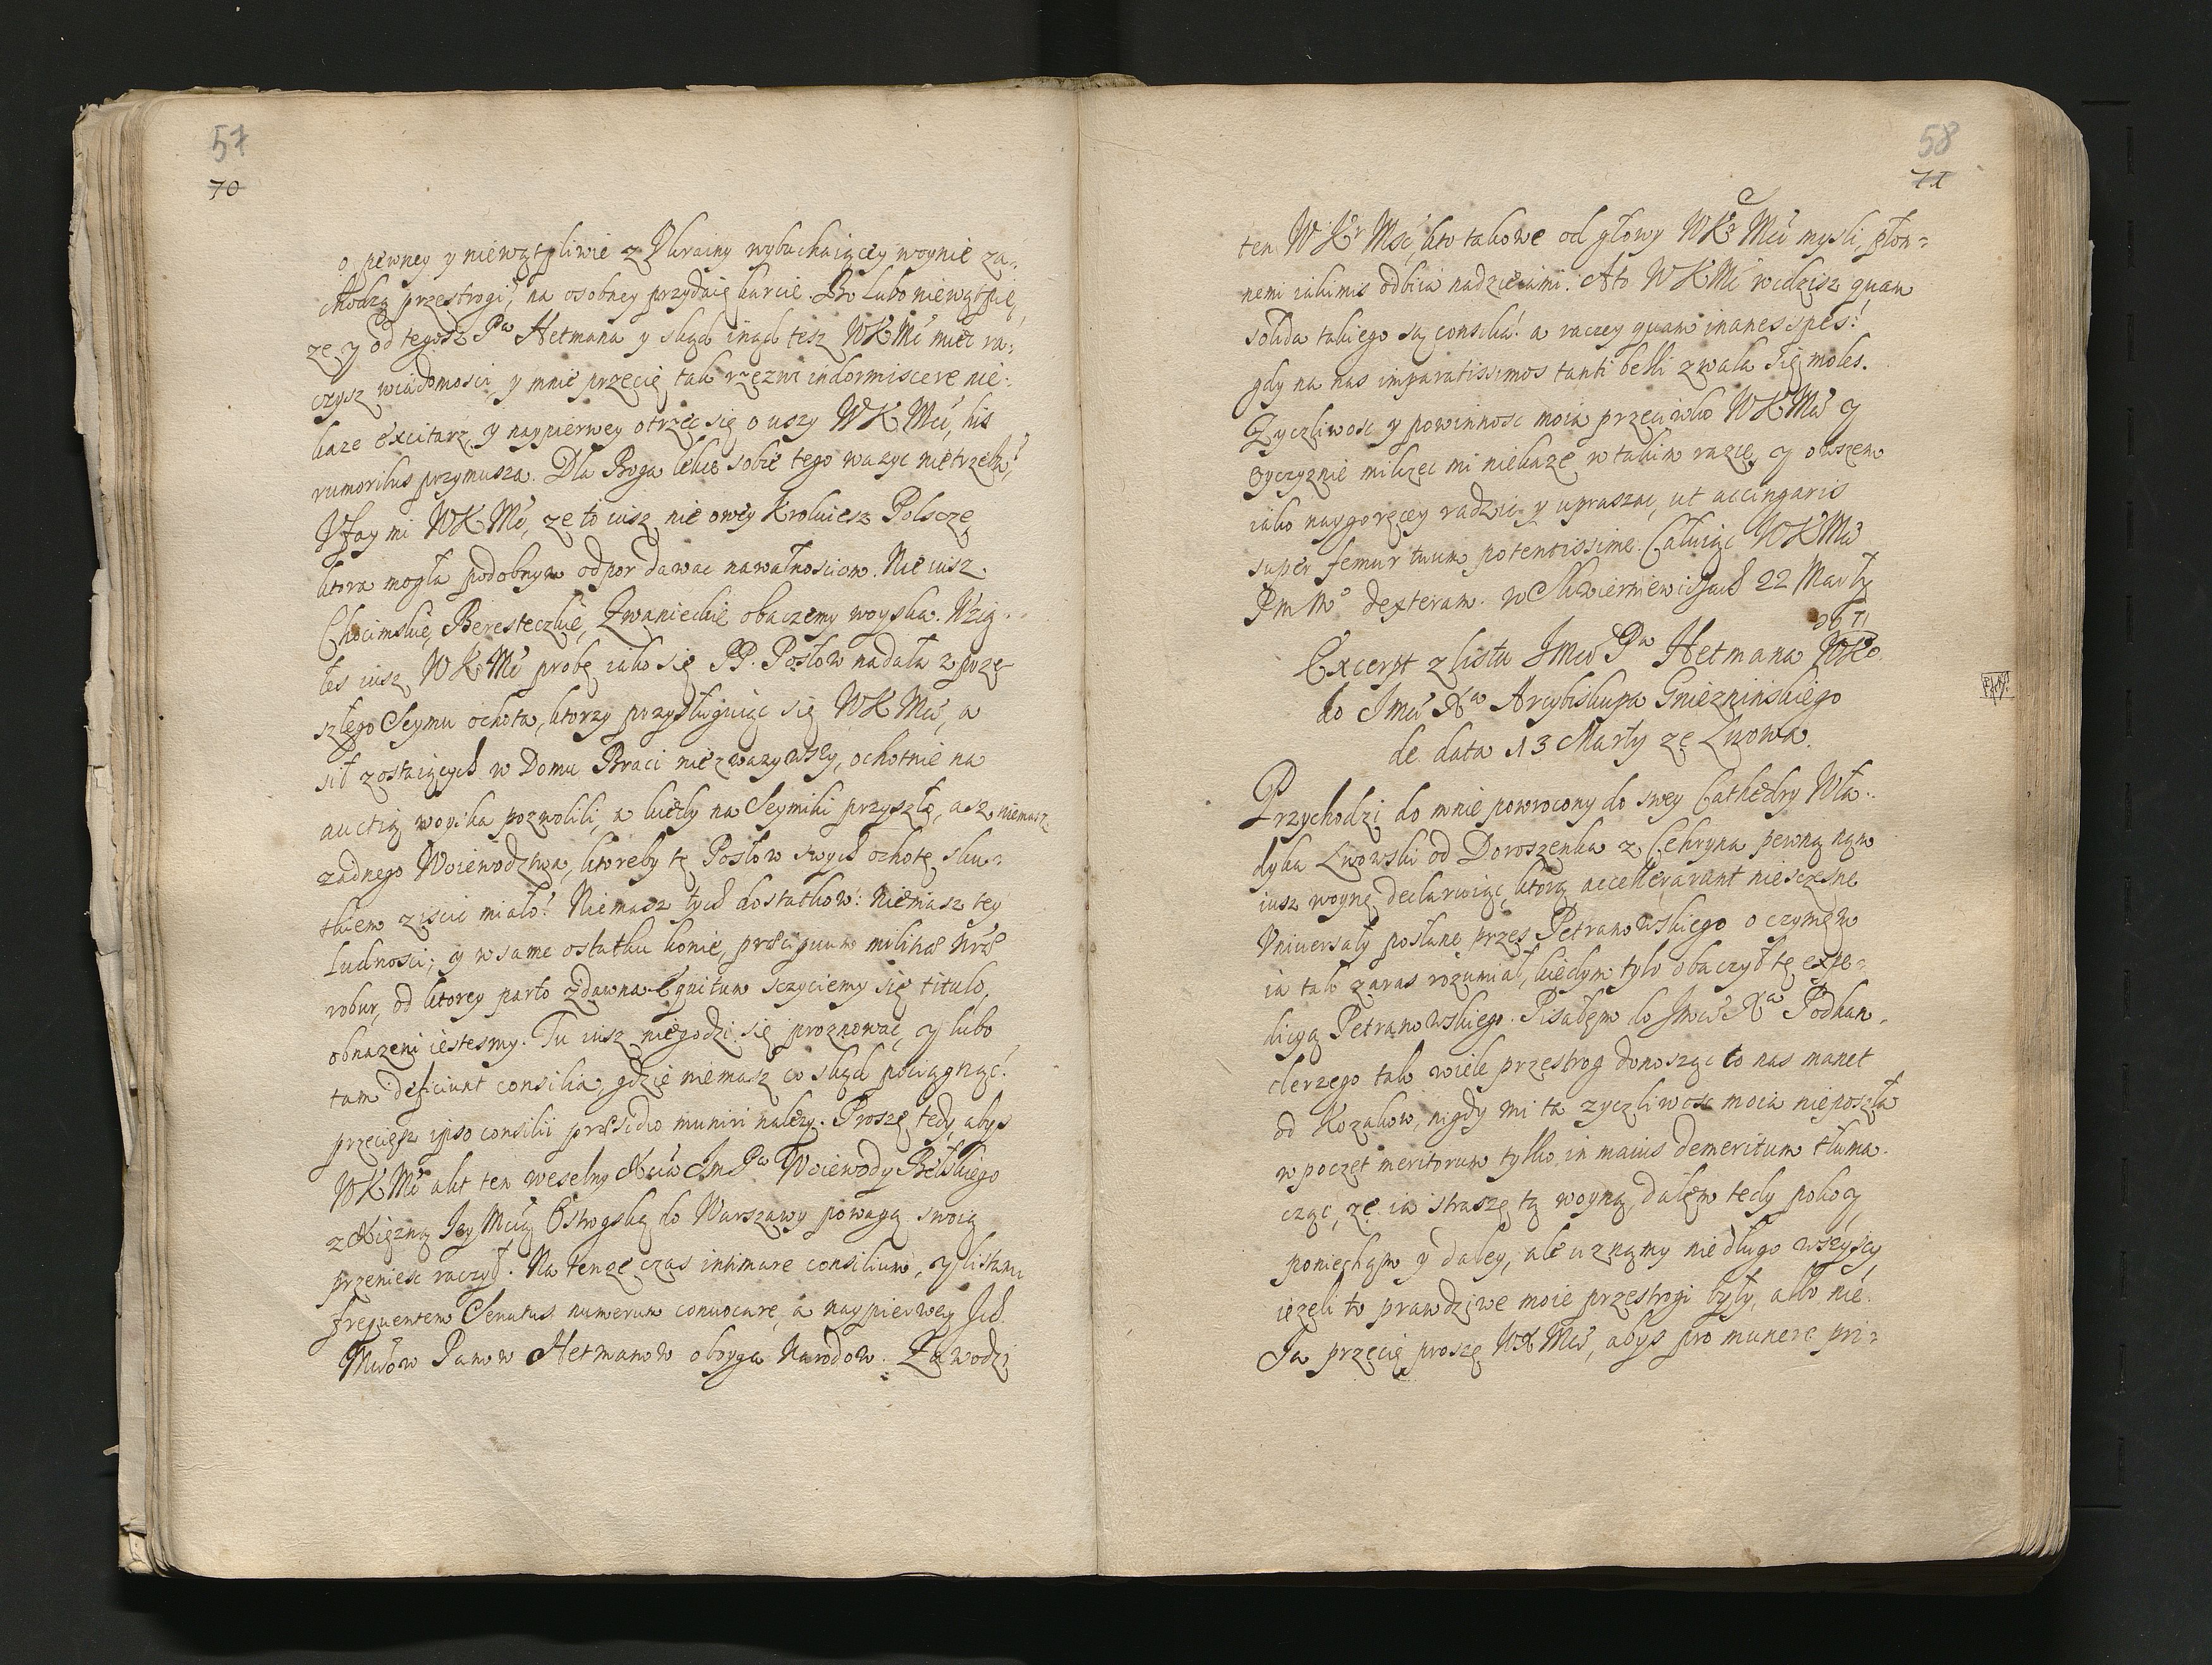 57
70
o pewney y niewątpliwie z Ukrainy wybuchaiącey woynie za-
chodzą przestrogi, na osobney przydaię karcie. Bo lubo niewątpię,
ze y od tegosz Pa Hetmana y skąd inąd tesz WKMć miec ra-
czysz wiadomosci, y mnie przecię tak indormiscere nie-
kaze excitarz, y naypierwey otrzec się o uszy WKMci, his
rumoribus przymusza. Dla Boga lekce sobie tego wazyc nietrzeba!
Ufay mi WKMć, ze to iusz nie owey kroluiesz Polscze,
ktora mogła podobnym odpor dawac nawałnosciom. Nie iusz
Chocimskie, Beresteczkie, Zwanieckie obaczemy woyska. Wzią-
łes iusz WKMć probę iako się PP. Posłow nadała z prze-
szłego Seymu ochota, ktorzy przysługuiąc się WKMci, a
sił zostaiących w Domu Braci niezwazywszy, ochotnie na
auctią woyska pozwolili, a kiedy na Seymiki przyszło, asz niemasz
zadnego Woiewodztwa, ktoreby tę Posłow swych ochotę sku-
tkiem ziscic miało! Niemasz tych dostatkow: Niemasz tey
ludnosci; y w same ostatku konie, præcipuum militiæ nræ
robur, od ktorey parto zdawna Equitum sczyciemy się titulo,
obnazeni iestesmy. Tu iusz niegodzi się proznowac, y lubo
tam deficiunt consilia, gdzie niemasz co skąd pociągnąć.
przeciesz ipso consilii præsidio muniri nalezy. Proszę tedy, abys
WKMć akt ten weselny Xcia Im Pa Woiewody Bełskiego
z Xięzną Iey Mcią Ostrogską do Warszawy powagą swoią
przeniesc raczył. Na tenze czas intimare consilium, y listami
frequentem Senatus numerum convocare, a naypierwey Ich
Mciow Panow Hetmanow oboyga Narodow. Zawodzi
58
71
ten WKr Mść, kto takowe od głowy WKr Mći mysli, płon-
nemi iakimis odbiia nadzieiami. Ato WKMć widzisz quam
solida takiego są consilia! a raczey quam inanes spes!
gdy na nas imparatissimos tanti belli zwala się moles.
Zyczliwosc y powinnosc moia przeciwko WKMci y
Oyczyznie milczec mi niekaze w takim razie, y owszem
iako naygoręcey radzic y upraszac, ut accingaris
super femur tuum potentissime. Całuiąc WKMci
PmMo dexteram. w Skierniewicach 22 Marty
1671
Excerpt z listu IMci Pa Hetmana WKo
do IMci Xa Arcybiskupa Gniezninskiego
de data 13 Marty ze Lwowa.
Przychodzi do mnie powrocony do swey Cathedry Wła-
dyka Lwowski od Doroszenka z Cehryna pewną nam
iusz woynę declaruiąc, ktorą accellerarunt niesczesne
Uniwersały posłane przez Petranowskiego o czymem
ia tak zaraz rozumiał, kiedym tylo obaczył tę expe-
dicyą Petranowskiego. Pisałem do Imci Xa Podkan-
clerzego tak wiele przestrog donosząc co nas manet
od Kozakow, nigdy mi ta zyczliwosc moia nieposzła
w poczet meritorum tylko in maius demeritum tłuma-
cząc, ze ia straszę tą woyną, dałem tedy pokoy
poniecham y daley, ale uznamy niedługo wszyscy,
iezeli to prawdziwe moie przestrogi były, albo nie.
Ia przecię proszę WXMci, abys pro munere pri-